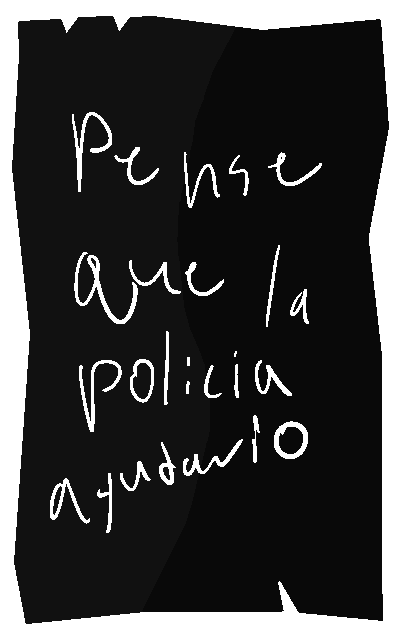 Pense
que la
policia
ayudario